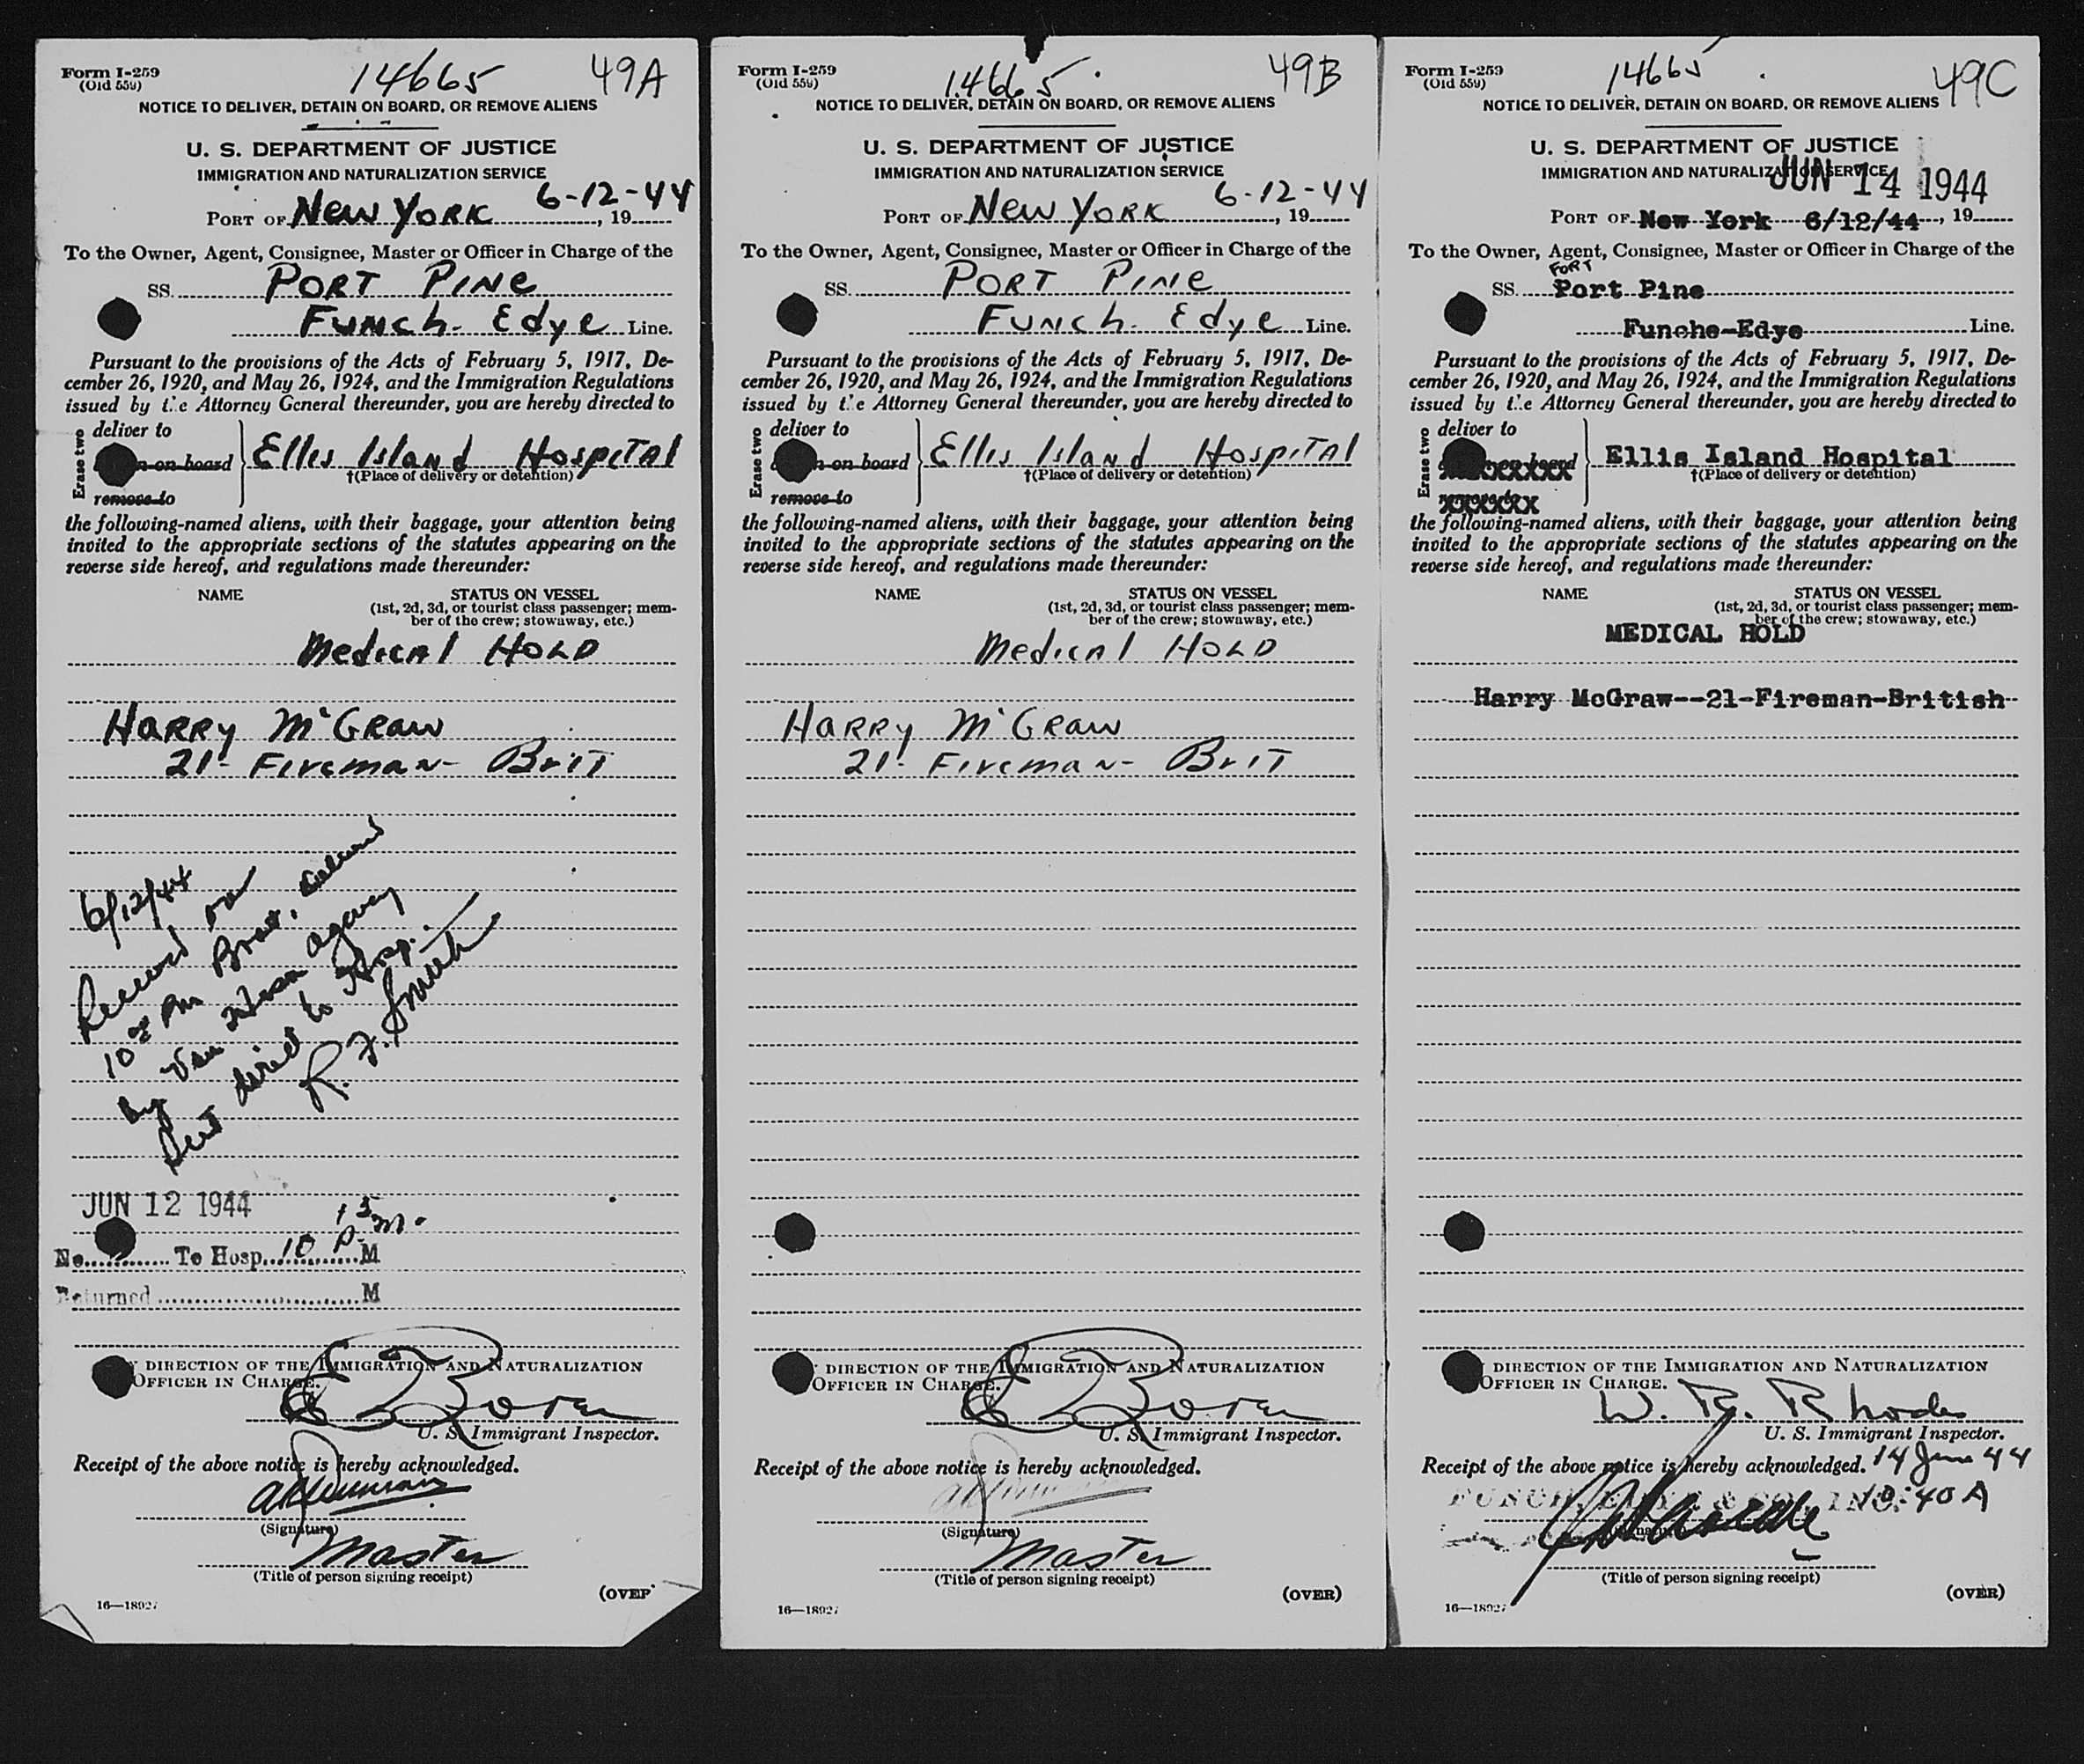 Form I-259
(Old 559)
14665
49A
NOTICE TO DELIVER, DETAIN ON BOARD, OR REMOVE ALIENS
U. S. DEPARTMENT OF JUSTICE
IMMIGRATION AND NATURALIZATION SERVICE
6-12-44
PORT OF New York, 19
To the Owner, Agent, Consignee, Master or Officer in Charge of the
SS. PORT PINE
Funch. Edye Line.
Pursuant to the provisions of the Acts of February 5, 1917, De-
cember 26, 1920, and May 26, 1924, and the Immigration Regulations
issued by the Attorney General thereunder, you are hereby directed to
Erase two
deliver to
on board
remove to
Ellis Island Hospital
†(Place of delivery or detention)
the following-named aliens, with their baggage, your attention being
invited to the appropriate sections of the statutes appearing on the
reverse side hereof, and regulations made thereunder:
NAME STATUS ON VESSEL
(1st, 2d, 3d, or tourist class passenger; mem-
ber of the crew; stowaway, etc.)
Medical Hold
HARRY McGRAW
21- Fireman- Brit
6/12/44
Received on
10 PM Boat,
by Van agency
Sent direct to Hosp.
R. J. Smith
JUN 12 1944
No. To Hosp. 10 15 P.M. M
Returned M
DIRECTION OF THE IMMIGRATION AND NATURALIZATION
OFFICER IN CHARGE.
U. S. Immigrant Inspector.
Receipt of the above notice is hereby acknowledged.
(Signature)
Master
(Title of person signing receipt)
(OVER
16—18027
Form I-259
(Old 559)
14665
49B
NOTICE TO DELIVER, DETAIN ON BOARD, OR REMOVE ALIENS
U. S. DEPARTMENT OF JUSTICE
IMMIGRATION AND NATURALIZATION SERVICE
6-12-44
PORT OF New York, 19
To the Owner, Agent, Consignee, Master or Officer in Charge of the
SS. PORT PINE
Funch. Edye Line.
Pursuant to the provisions of the Acts of February 5, 1917, De-
cember 26, 1920, and May 26, 1924, and the Immigration Regulations
issued by the Attorney General thereunder, you are hereby directed to
Erase two
deliver to
on board
remove to
Ellis Island Hospital
†(Place of delivery or detention)
the following-named aliens, with their baggage, your attention being
invited to the appropriate sections of the statutes appearing on the
reverse side hereof, and regulations made thereunder:
NAME STATUS ON VESSEL
(1st, 2d, 3d, or tourist class passenger; mem-
ber of the crew; stowaway, etc.)
Medical Hold
HARRY McGRAW
21- Fireman- Brit
DIRECTION OF THE IMMIGRATION AND NATURALIZATION
OFFICER IN CHARGE.
U. S. Immigrant Inspector.
Receipt of the above notice is hereby acknowledged.
(Signature)
Master
(Title of person signing receipt)
(OVER)
16—18027
Form I-259
(Old 559)
14665
49C
NOTICE TO DELIVER, DETAIN ON BOARD, OR REMOVE ALIENS
U. S. DEPARTMENT OF JUSTICE
IMMIGRATION AND NATURALIZATION SERVICE
JUN 14 1944
PORT OF New York 6/12/44, 19
To the Owner, Agent, Consignee, Master or Officer in Charge of the
FORT
SS. Port Pine
Funche-Edye Line.
Pursuant to the provisions of the Acts of February 5, 1917, De-
cember 26, 1920, and May 26, 1924, and the Immigration Regulations
issued by the Attorney General thereunder, you are hereby directed to
Erase two
deliver to
on board
remove to
Ellis Island Hospital
†(Place of delivery or detention)
the following-named aliens, with their baggage, your attention being
invited to the appropriate sections of the statutes appearing on the
reverse side hereof, and regulations made thereunder:
NAME STATUS ON VESSEL
(1st, 2d, 3d, or tourist class passenger; mem-
ber of the crew; stowaway, etc.)
MEDICAL HOLD
Harry McGraw--21-Fireman-British
DIRECTION OF THE IMMIGRATION AND NATURALIZATION
OFFICER IN CHARGE.
W. R. Rhodes
U. S. Immigrant Inspector.
Receipt of the above notice is hereby acknowledged. 14 June 44
FUNCH, EDYE & CO. INC. 10:40 A
(Title of person signing receipt)
(OVER)
16—18027